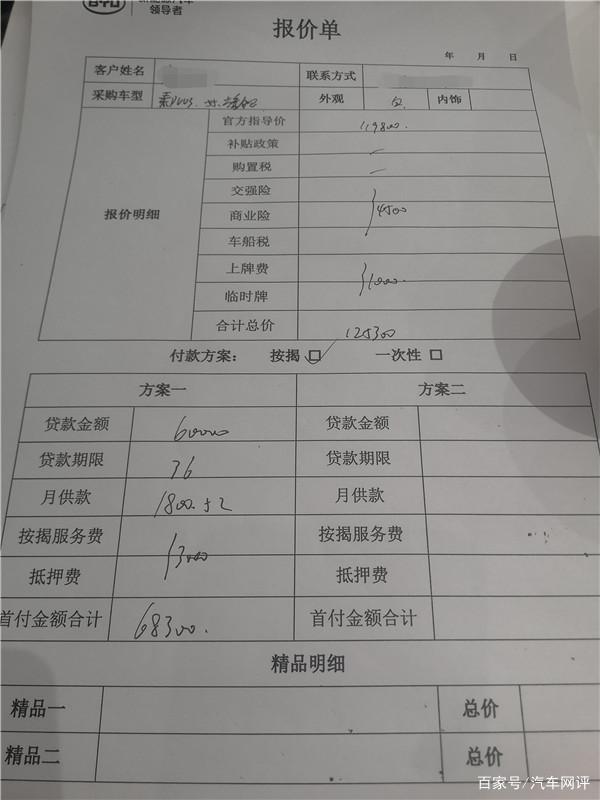 BYD
领导者
报价单
年 月 日
客户姓名 联系方式
采购车型 秦PLUS 外观 白 内饰
报价明细
官方指导价 119800.
补贴政策 -
购置税 -
交强险
商业险 4500
车船税
上牌费
临时牌 1000.
合计总价 125300
付款方案: 按揭 ☑ 一次性 □
方案一 方案二
贷款金额 60000 贷款金额
贷款期限 36 贷款期限
月供款 1800.52 月供款
按揭服务费 按揭服务费
3000
抵押费 抵押费
首付金额合计 68300. 首付金额合计
精品明细
精品一 总价
精品二 总价
百家号/汽车网评